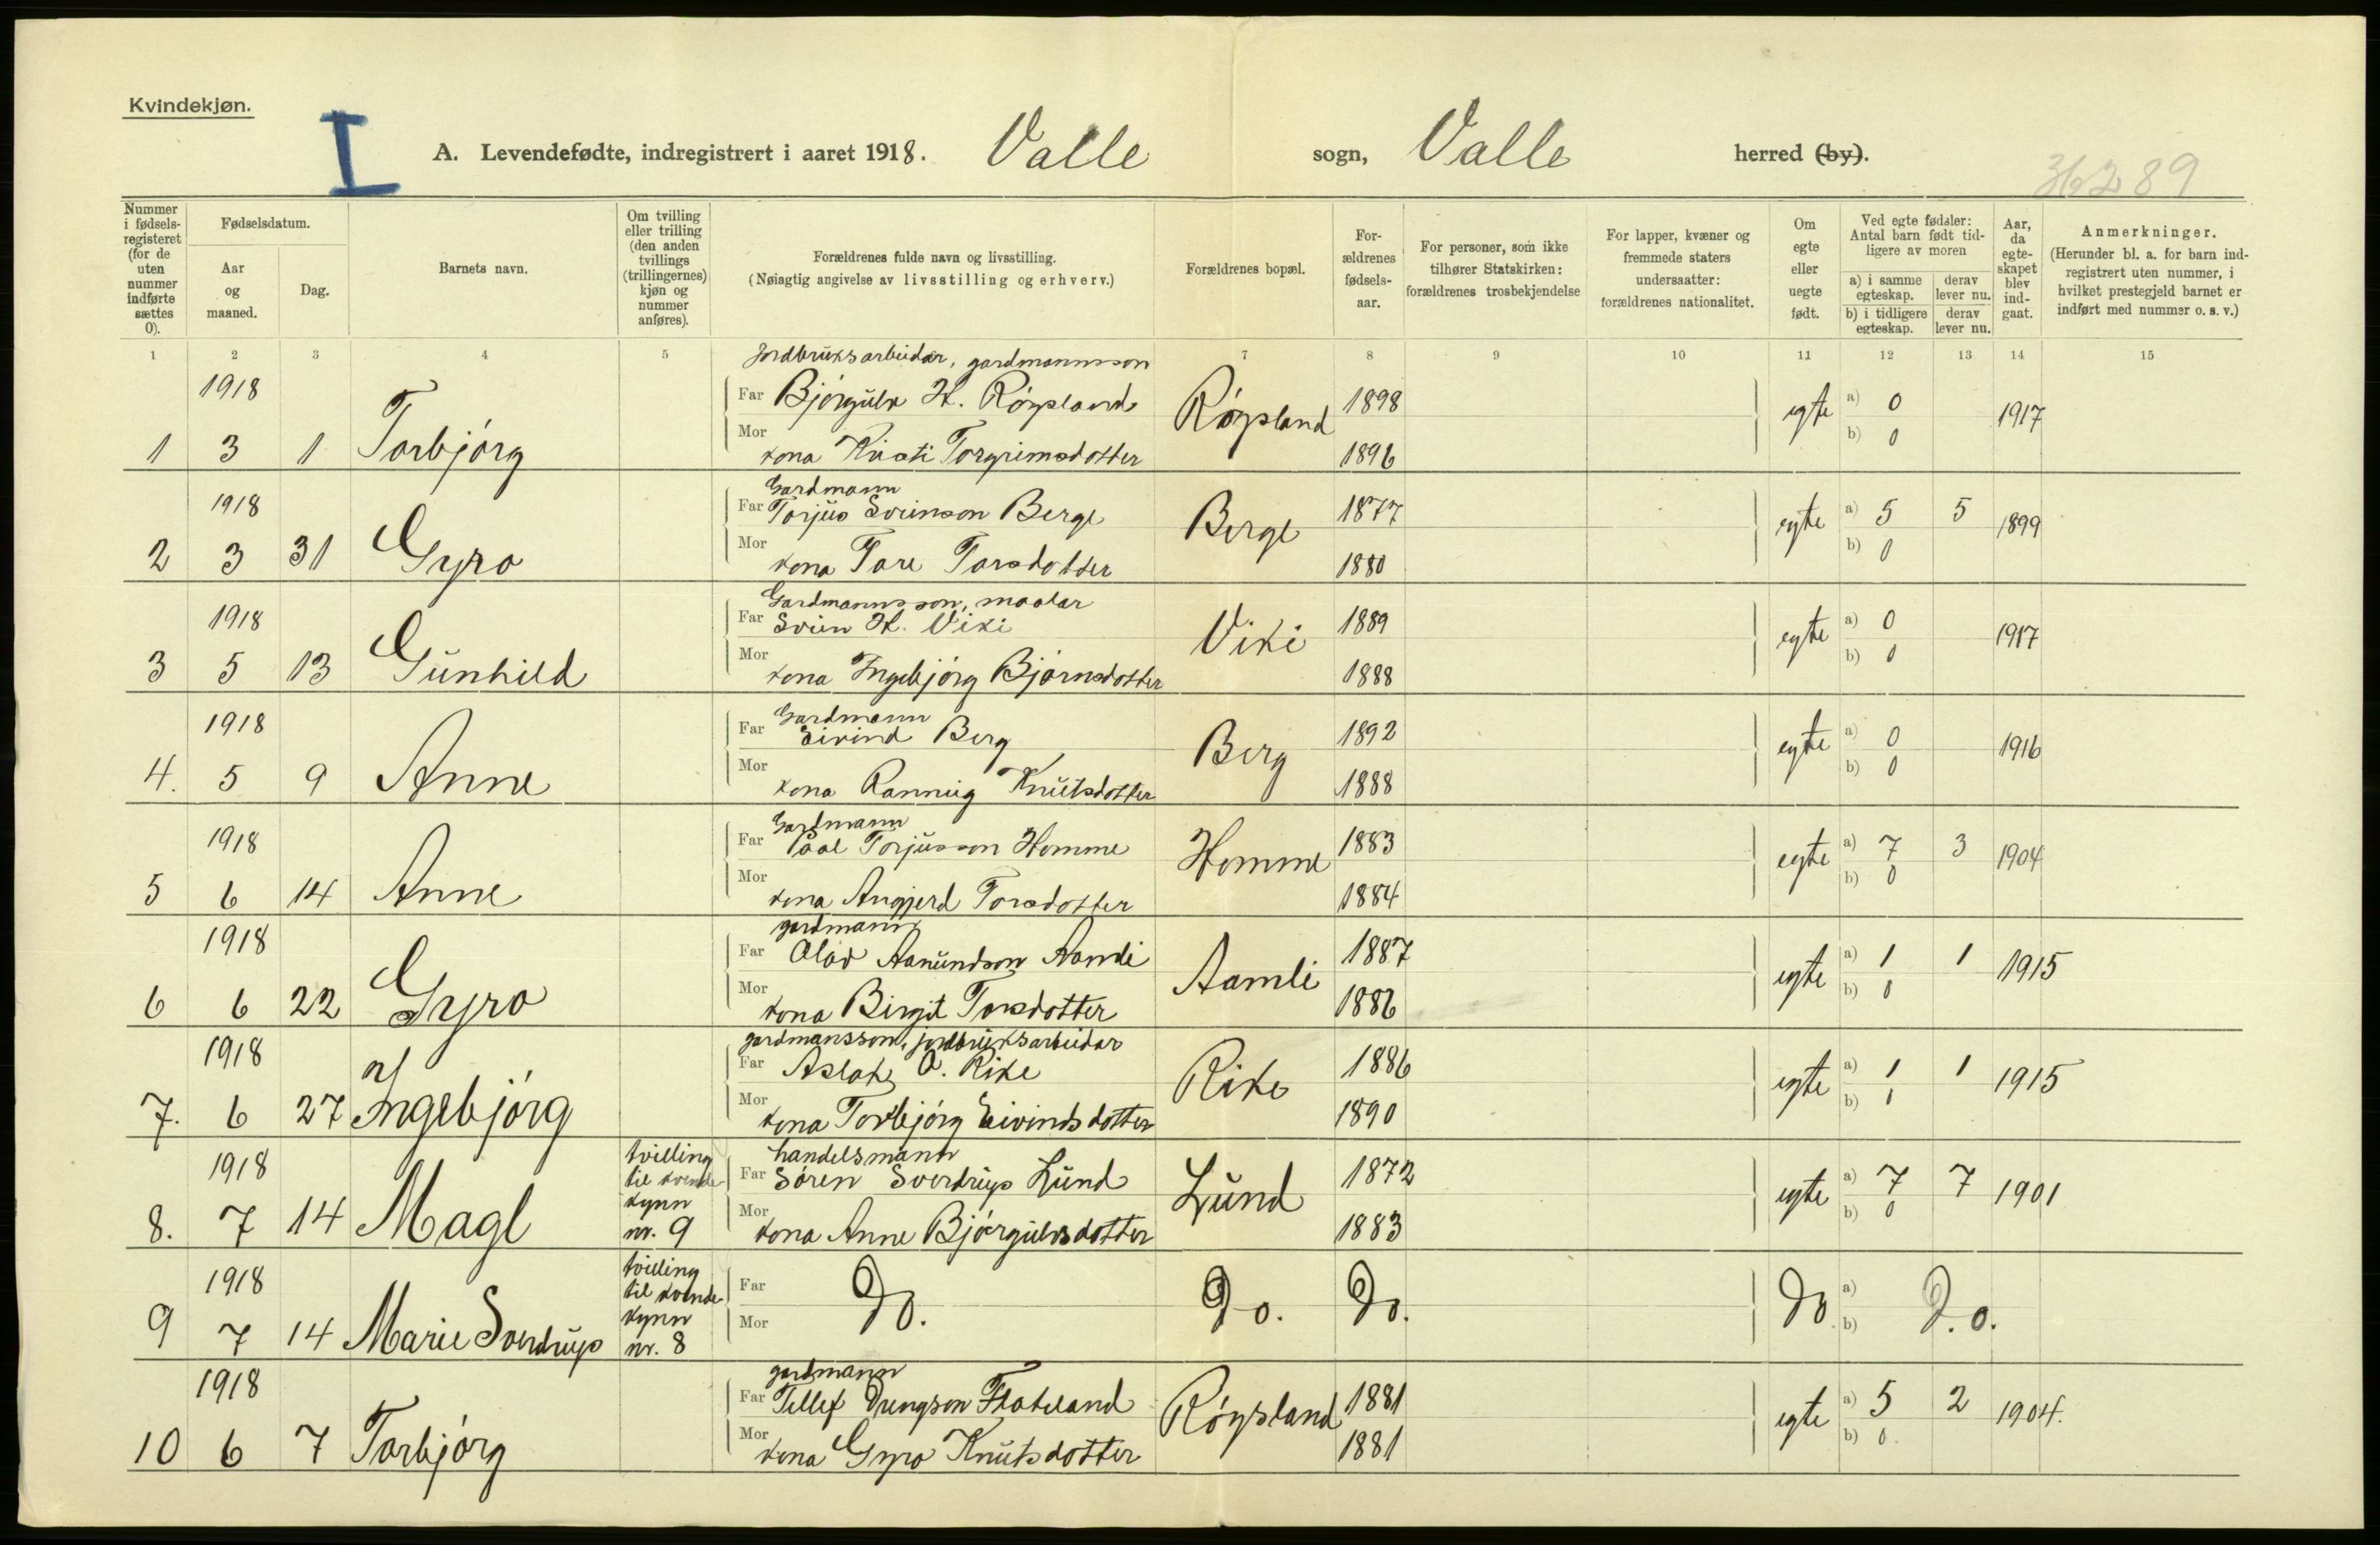 Kvindekjøn.
I
A. Levendefødte, indregistrert i aaret 1918. Valle sogn, Valle herred (by).
36289
Nummer i fødselsregisteret (for de uten nummer indførte sættes 0).
Fødselsdatum.
Aar og maaned.
Dag.
Barnets navn.
Om tvilling eller trilling (den anden tvillings (trillingernes) kjøn og nummer anføres).
Forældrenes fulde navn og livsstilling.
(Nøiagtig angivelse av livsstilling og erhverv.)
Forældrenes bopæl.
Forældrenes fødselsaar.
For personer, som ikke tilhører Statskirken: forældrenes trosbekjendelse
For lapper, kvæner og fremmede staters undersaatter: forældrenes nationalitet.
Om egte eller uegte født.
Ved egte fødsler: Antal barn født tidligere av moren
a) i samme egteskap. derav lever nu.
b) i tidligere egteskap. derav lever nu.
Aar, da egteskapet blev indgaat.
Anmerkninger.
(Herunder bl. a. for barn indregistrert uten nummer, i hvilket prestegjeld barnet er indført med nummer o. s. v.)
1 2 3 4 5 7 8 9 10 11 12 13 14 15
Jordbruksarbeidar, gardmannsson
1918 Far Bjørgulv H. Røysland Røysland 1898 egte a) 0 1917
1 3 1 Torbjørg Mor kona Kristi Torgrimsdotter 1896 b) 0
Gardmann
1918 Far Torjus Sveinson Berge Berge 1877 egte a) 5 5 1899
2 3 31 Gyro Mor kona Tore Torsdotter 1880 b) 0
Gardmannsson, maalar
1918 Far Svein H. Viki Viki 1889 egte a) 0 1917
3 5 13 Gunhild Mor kona Ingebjørg Bjørnsdotter 1888 b) 0
Gardmann
1918 Far Eivind Berg Berg 1892 egte a) 0 1916
4. 5 9 Anne Mor kona Rannveig Knutsdotter 1888 b) 0
Gardmann
1918 Far Paal Torjusson Homme Homme 1883 egte a) 7 3 1904
5 6 14 Anne Mor kona Angjerd Torsdotter 1884 b) 0
gardmann
1918 Far Olav Aanundson Aamli Aamli 1887 egte a) 1 1 1915
6 6 22 Gyro Mor kona Birgit Torsdotter 1886 b) 0
gardmansson, jordbruksarbeidar
1918 Far Aslak O. Rike Rike 1886 egte a) 1 1 1915
7. 6 27 Ingebjørg Mor kona Torbjørg Eivindsdotter 1890 b)
handelsmann
1918 tvilling til kvendekynn nr. 9 Far Søren Sverdrup Lund Lund 1872 egte a) 7 7 1901
8. 7 14 Magl Mor kona Anne Bjørgulvsdotter 1883 b) 0
1918 tvilling til kvendekynn nr. 8 Far Do. Do. Do. Do a) D.o.
9 7 14 Marie Sverdrup Mor b)
gardmann
1918 Far Tellef Drengson Flateland Røysland 1881 egte a) 5 2 1904.
10 6 7 Torbjørg Mor kona Gyro Knutsdotter 1881 b) 0.